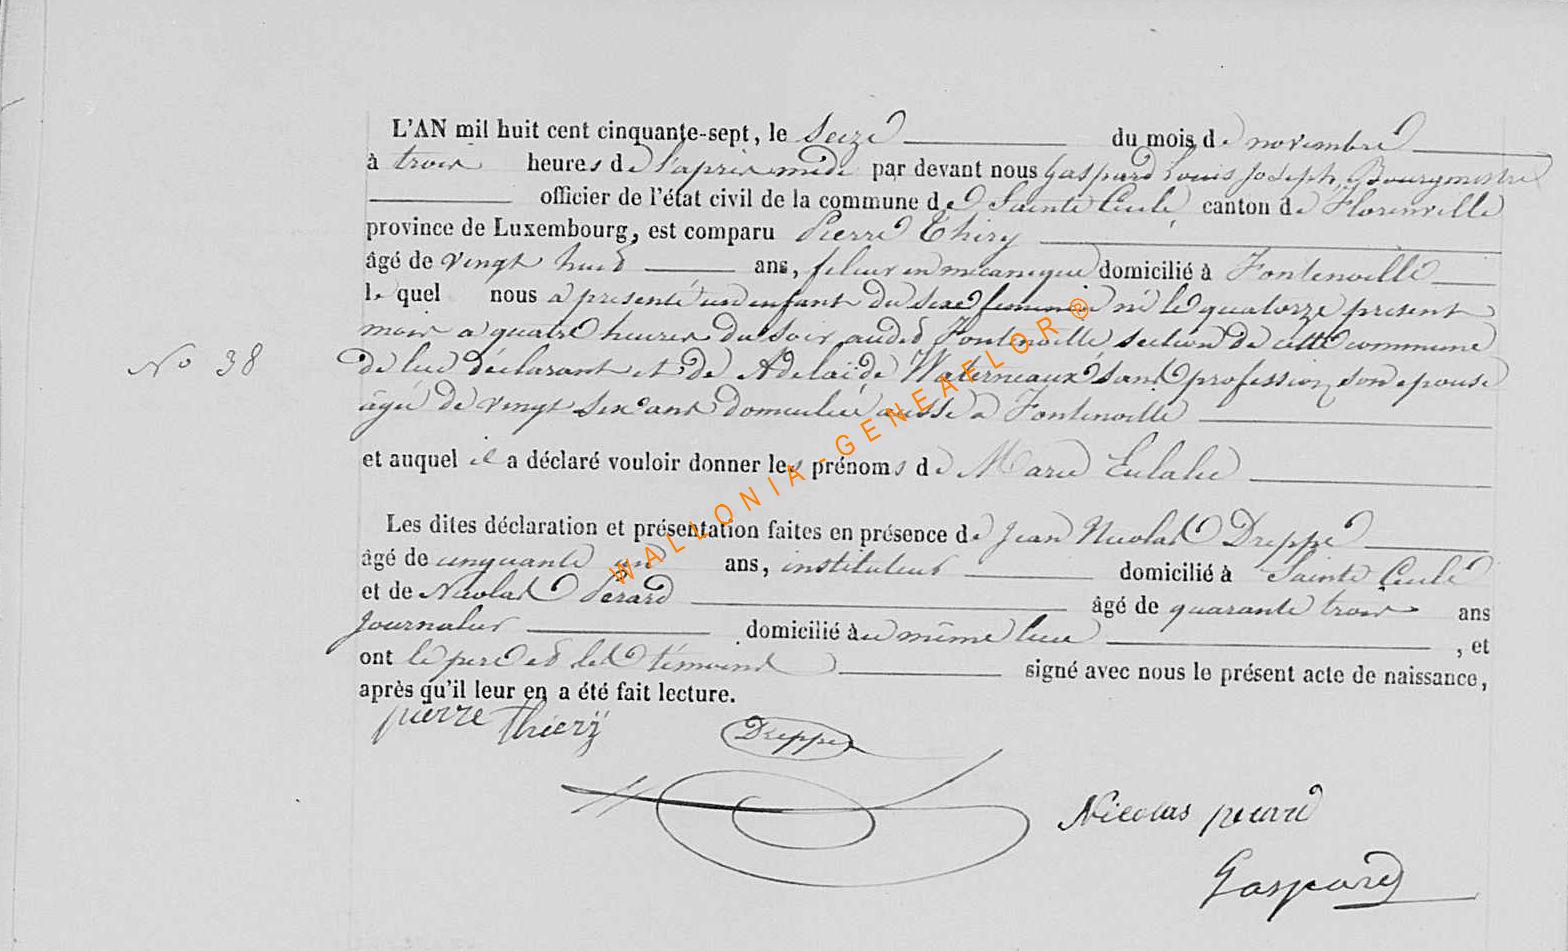 L'AN mil huit cent cinquante-sept, le seize du mois de novembre
à trois heures de l'après midi par devant nous Gaspard Louis Joseph, Bourgmestre
officier de l'état civil de la commune de Sainte Cecile canton de Florenville
province de Luxembourg, est comparu Pierre Thiry
âgé de vingt huit ans, fileur en mécanique domicilié à Fontenoille
le quel nous a présenté un enfant du sexe feminin né le quatorze présent
mois a quatre heures du soir audit Fontenoille section de cette commune
No 38 de lui déclarant et de Adelaïde Waterneaux sans profession son epouse
âgée de vingt six ans domiciliée aussi a Fontenoille
et auquel il a déclaré vouloir donner les prénoms de Marie Eulalie
Les dites déclaration et présentation faites en présence de Jean Nicolas Dreppe
âgé de cinquante un ans, instituteur domicilié à Sainte Cecile
et de Nicolas Pérard âgé de quarante trois ans
Journalier domicilié au même lieu , et
ont le pere et les témoins signé avec nous le présent acte de naissance,
après qu'il leur en a été fait lecture.
pierre thierÿ Dreppe
Nicolas
Gaspard
WALLONIA-GENEAFLOR ®